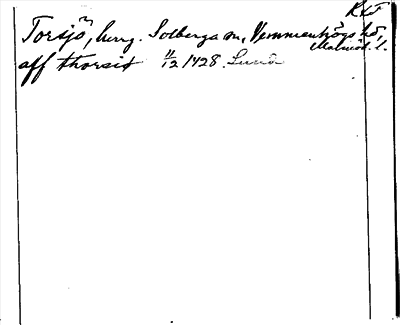 KrF
Torsjö, herrg. Solberga sn, Vemmenhögs hd,
Malmöh. l.
aff thorsiø 11/12 1428. Lund